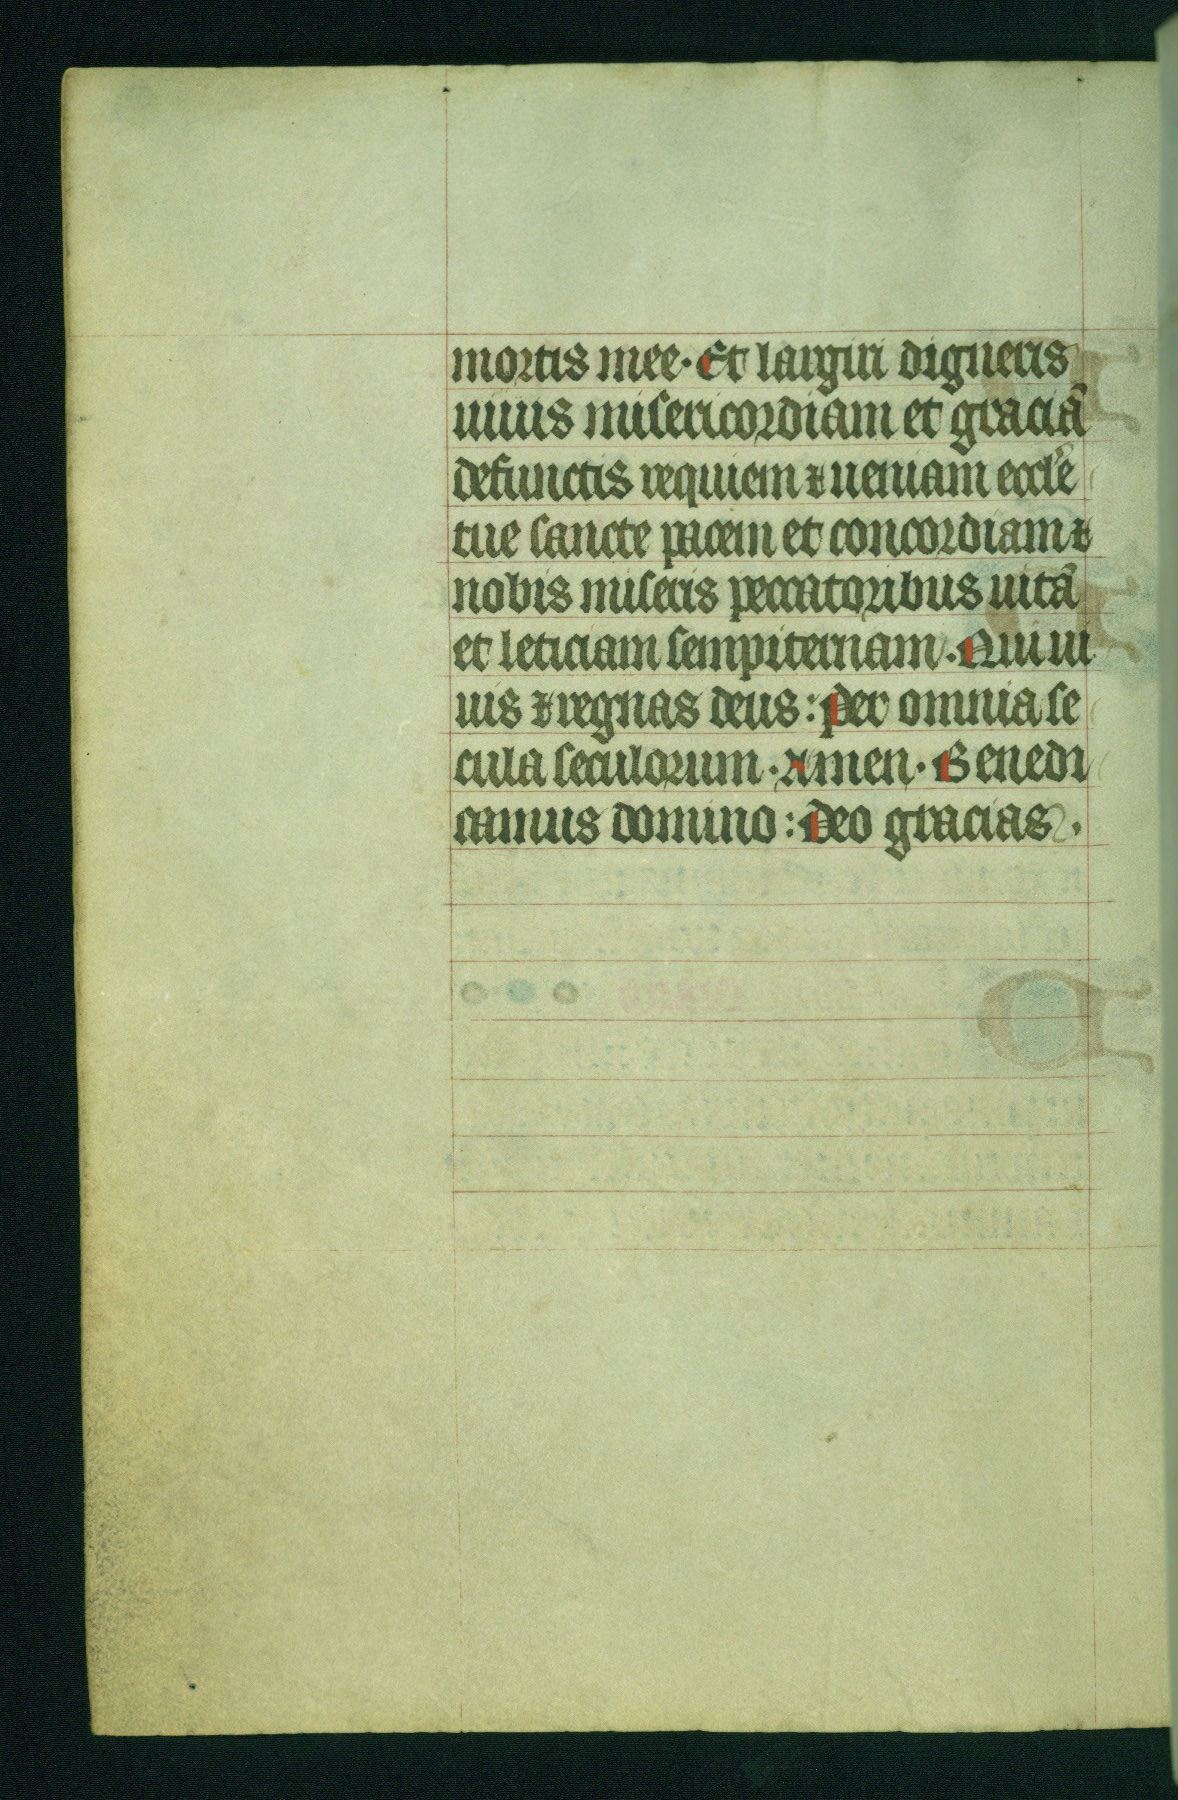 mortis mee· Et largiri digneris
uiuis misericordiam et graciā
defunctis requiem ⁊ ueniam eccl̄e
tue sancte pacem et concordiam ⁊
nobis miseris peccatoribus uitā
et leticiam sempiternam· Qui ui
uis ⁊ regnas deus: Per omnia se
cula seculorum· Amen· Benedi
camus domino: Deo gracias·